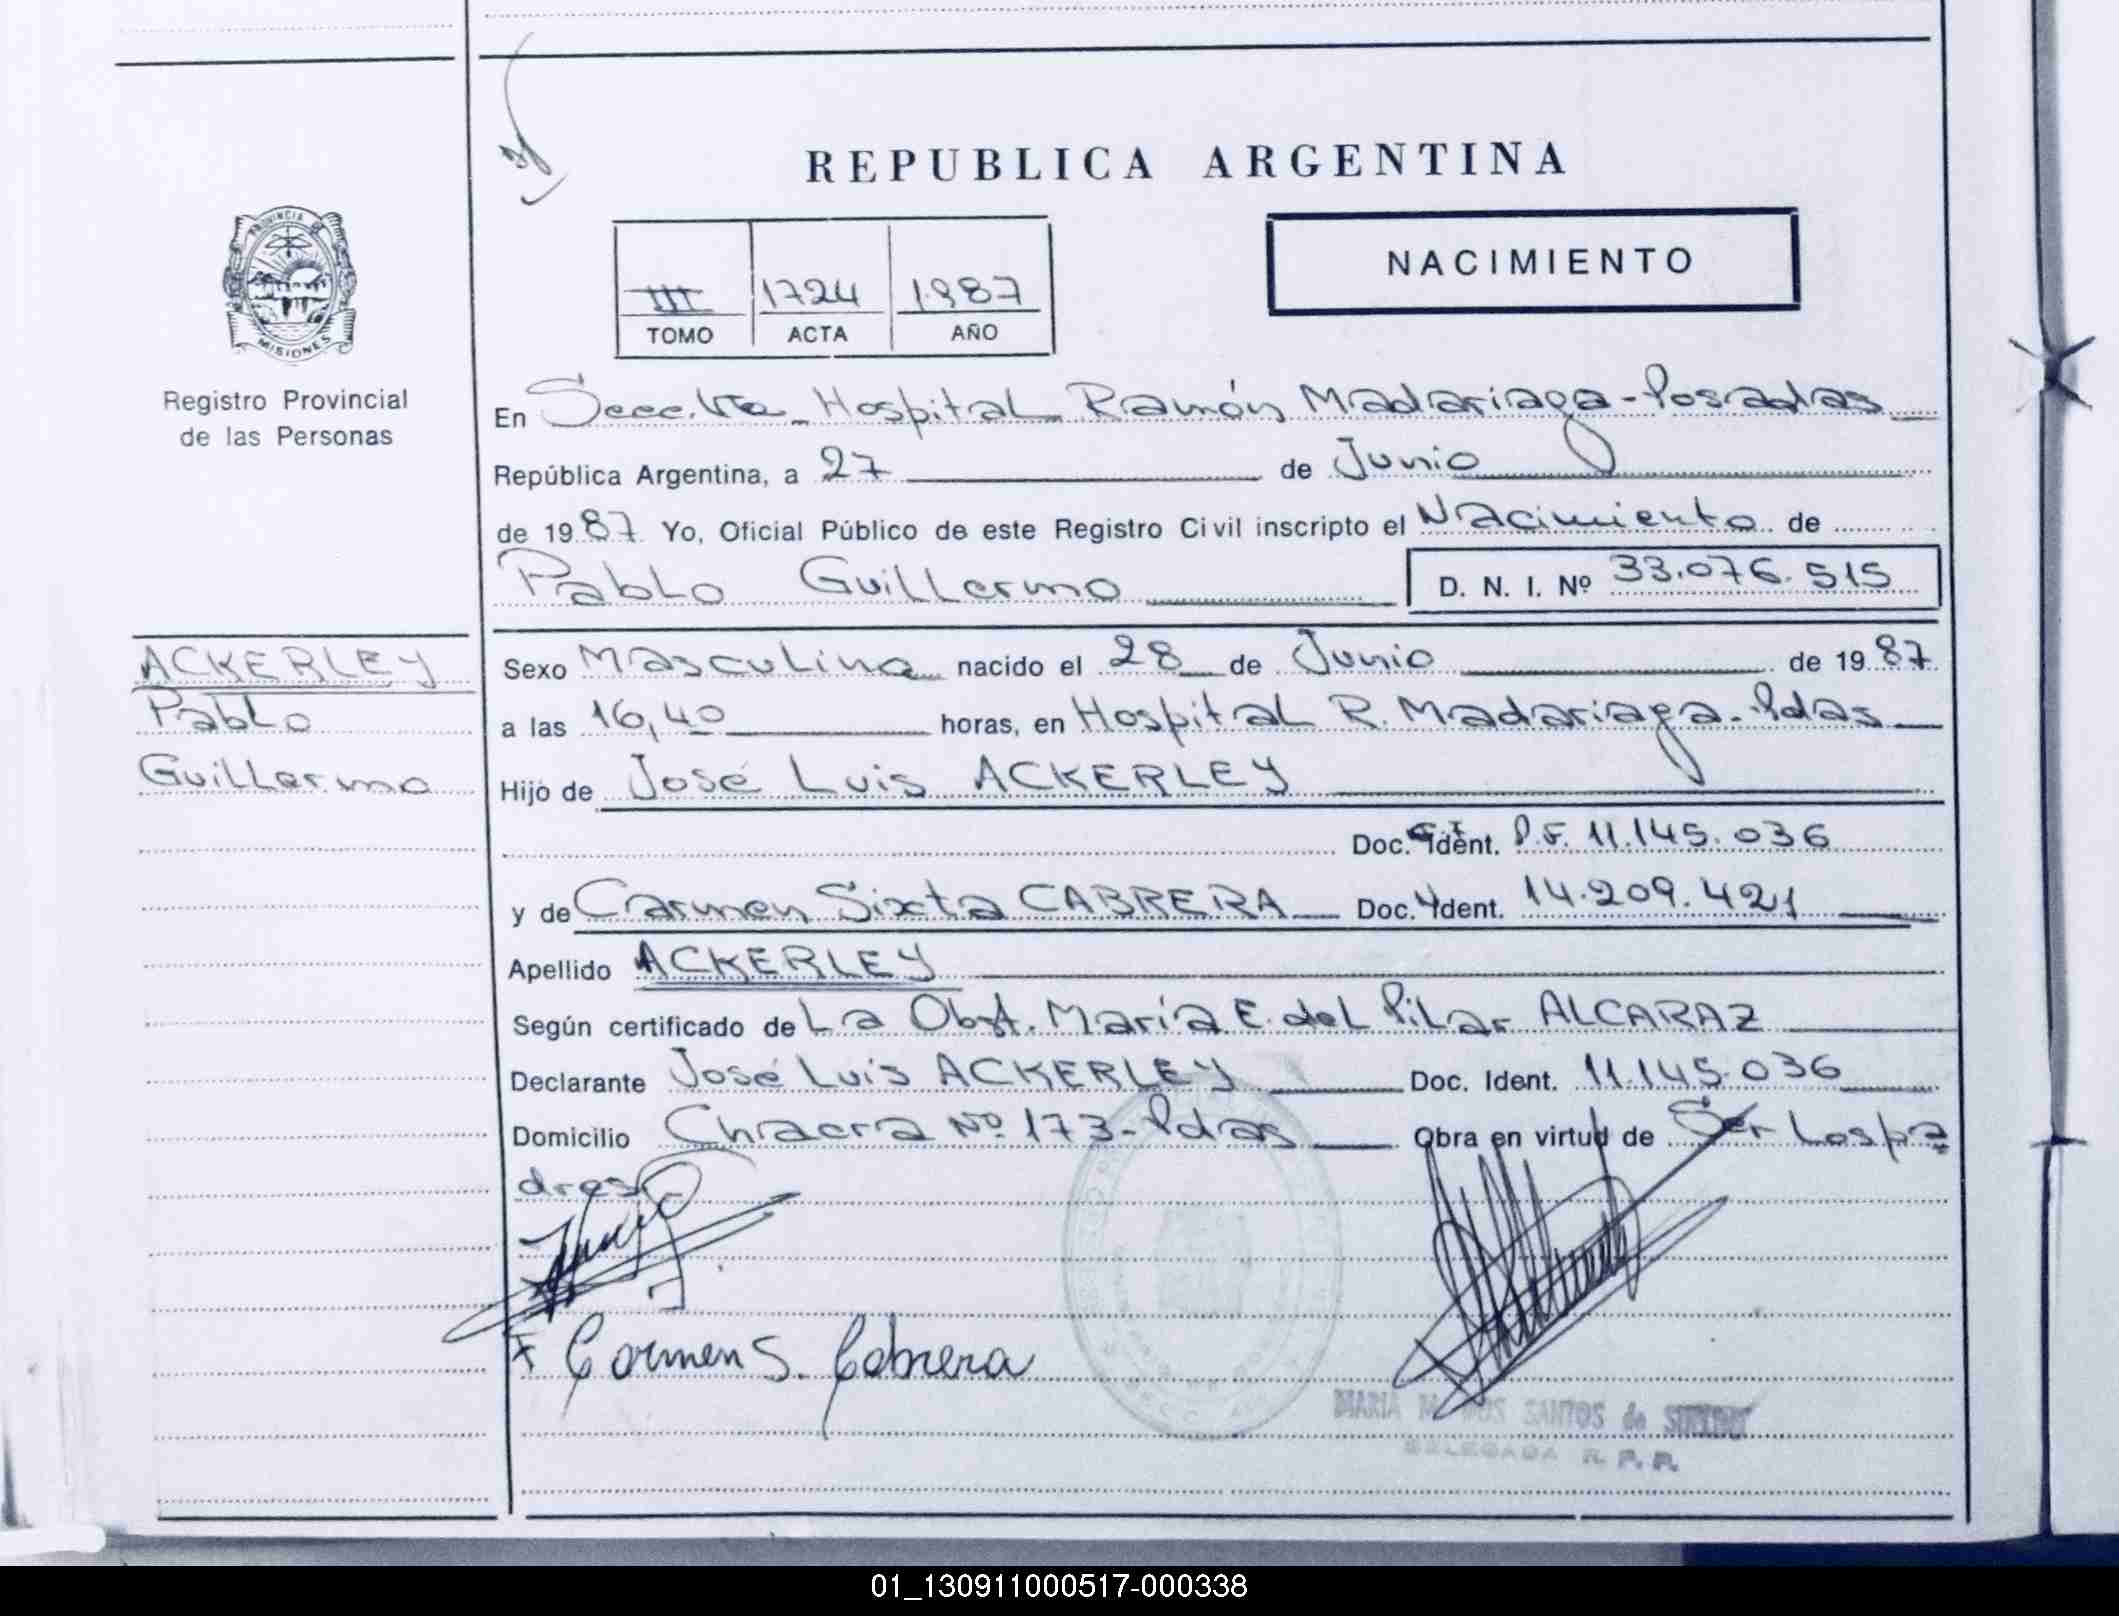 REPUBLICA ARGENTINA
NACIMIENTO
III 1724 1987
TOMO ACTA AÑO
PROVINCIA
MISIONES
Registro Provincial
de las Personas
En Secc. Vta. Hospital Ramón Madariaga - Posadas
República Argentina, a 27 de Junio
de 1987 Yo, Oficial Público de este Registro Civil inscripto el Nacimiento de
Pablo Guillermo D. N. I. Nº 33.076.515
ACKERLEY
Pablo
Guillermo
Sexo Masculino nacido el 28 de Junio de 1987
a las 16,40 horas, en Hospital R. Madariaga - Pdas
Hijo de José Luis ACKERLEY
Doc. Ident. C.I. P.F. 11.145.036
y de Carmen Sixta CABRERA Doc. Ident. 14.209.421
Apellido ACKERLEY
Según certificado de La Obst. María E. del Pilar ALCARAZ
Declarante José Luis ACKERLEY Doc. Ident. 11.145.036
Domicilio Chacra Nº 173 - Pdas Obra en virtud de Ser Los pa
dres
Carmen S. Cabrera
MARIA M. DOS SANTOS de
DELEGADA R. P. P.
01_130911000517-000338